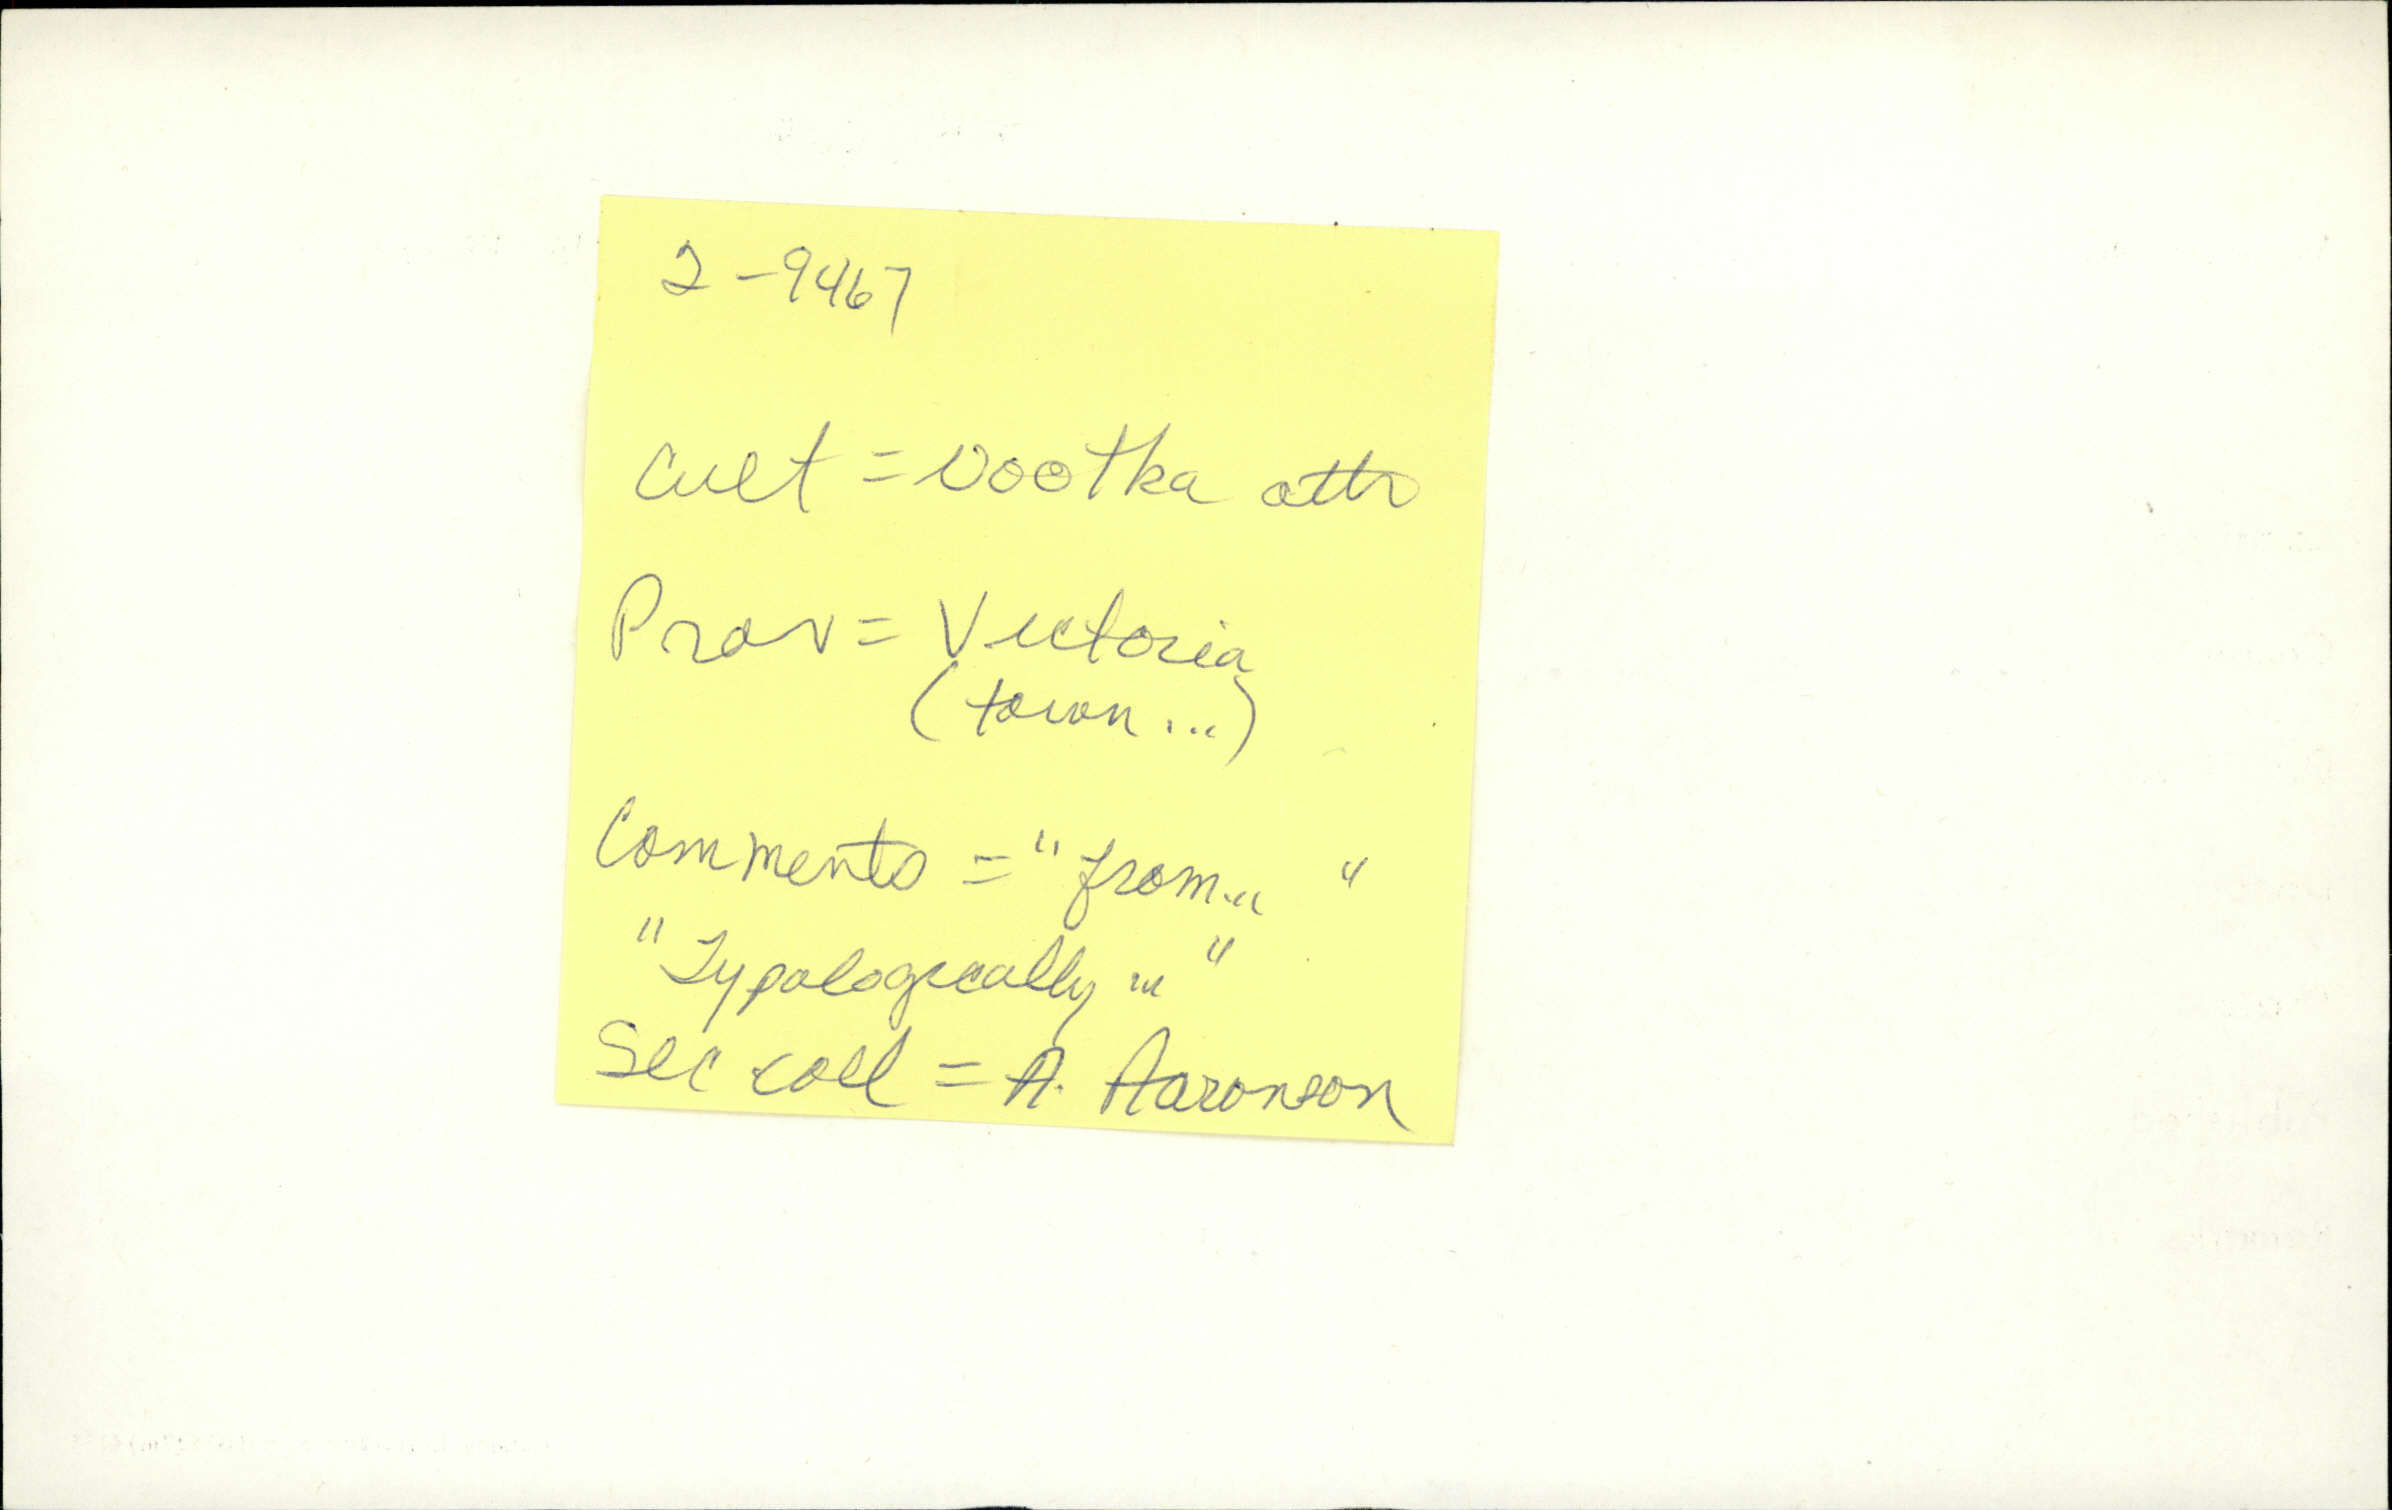 2-9467
Cult = Nootka attr
Prov = Victoria
(town ...)
Comments = "from... "
"Typologically ... "
Sec coll = A. Aaronson